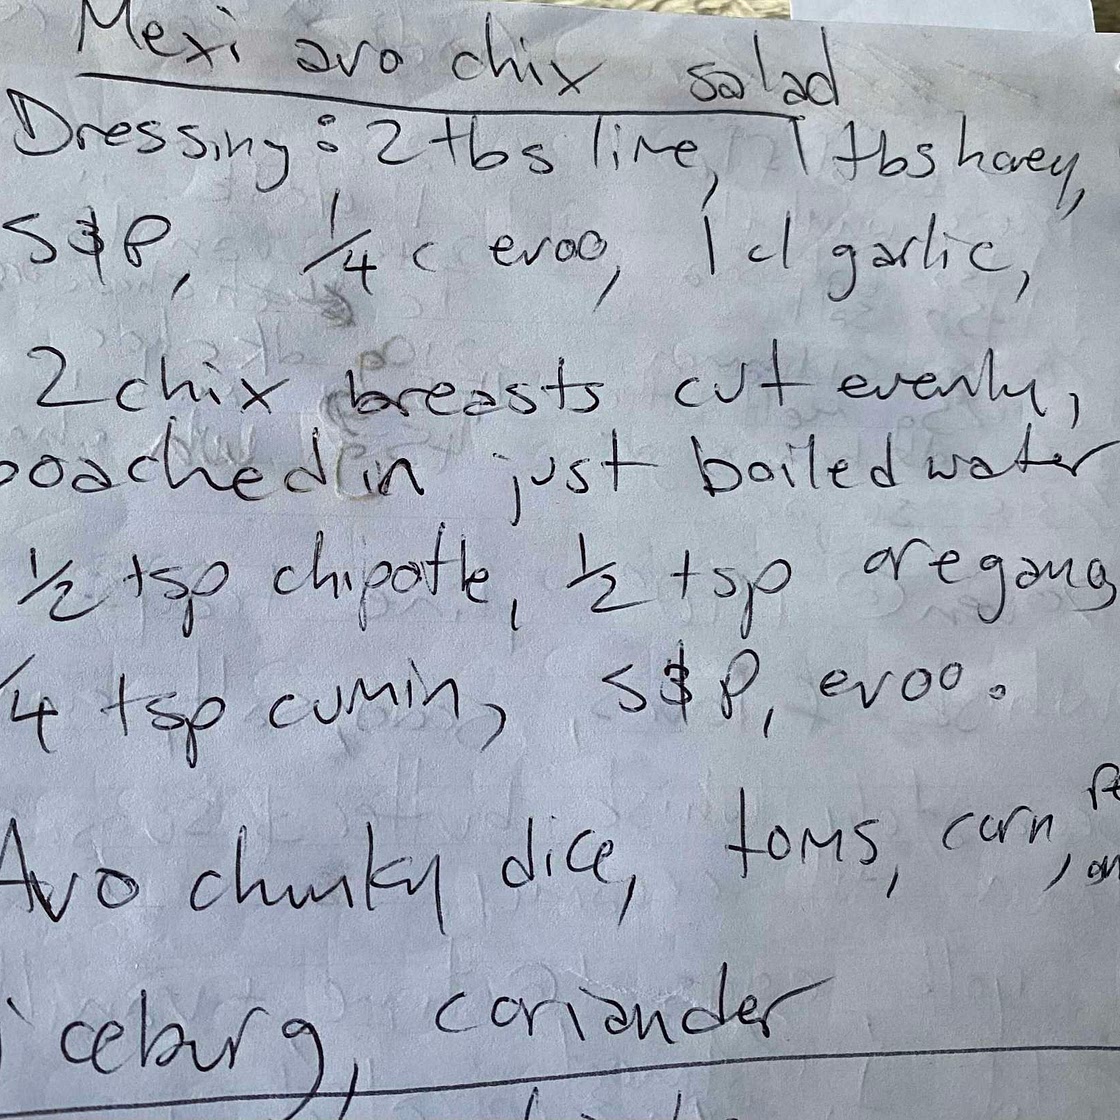 Mexi avo chix salad
Dressing: 2 tbs lime, 1 tbs honey,
S&P, 1/4 c evoo, 1 cl garlic,
2 chix breasts cut evenly,
poached in just boiled water
1/2 tsp chipotle, 1/2 tsp oregano,
1/4 tsp cumin, S&P, evoo.
Avo chunky dice, toms, corn,
iceburg, coriander